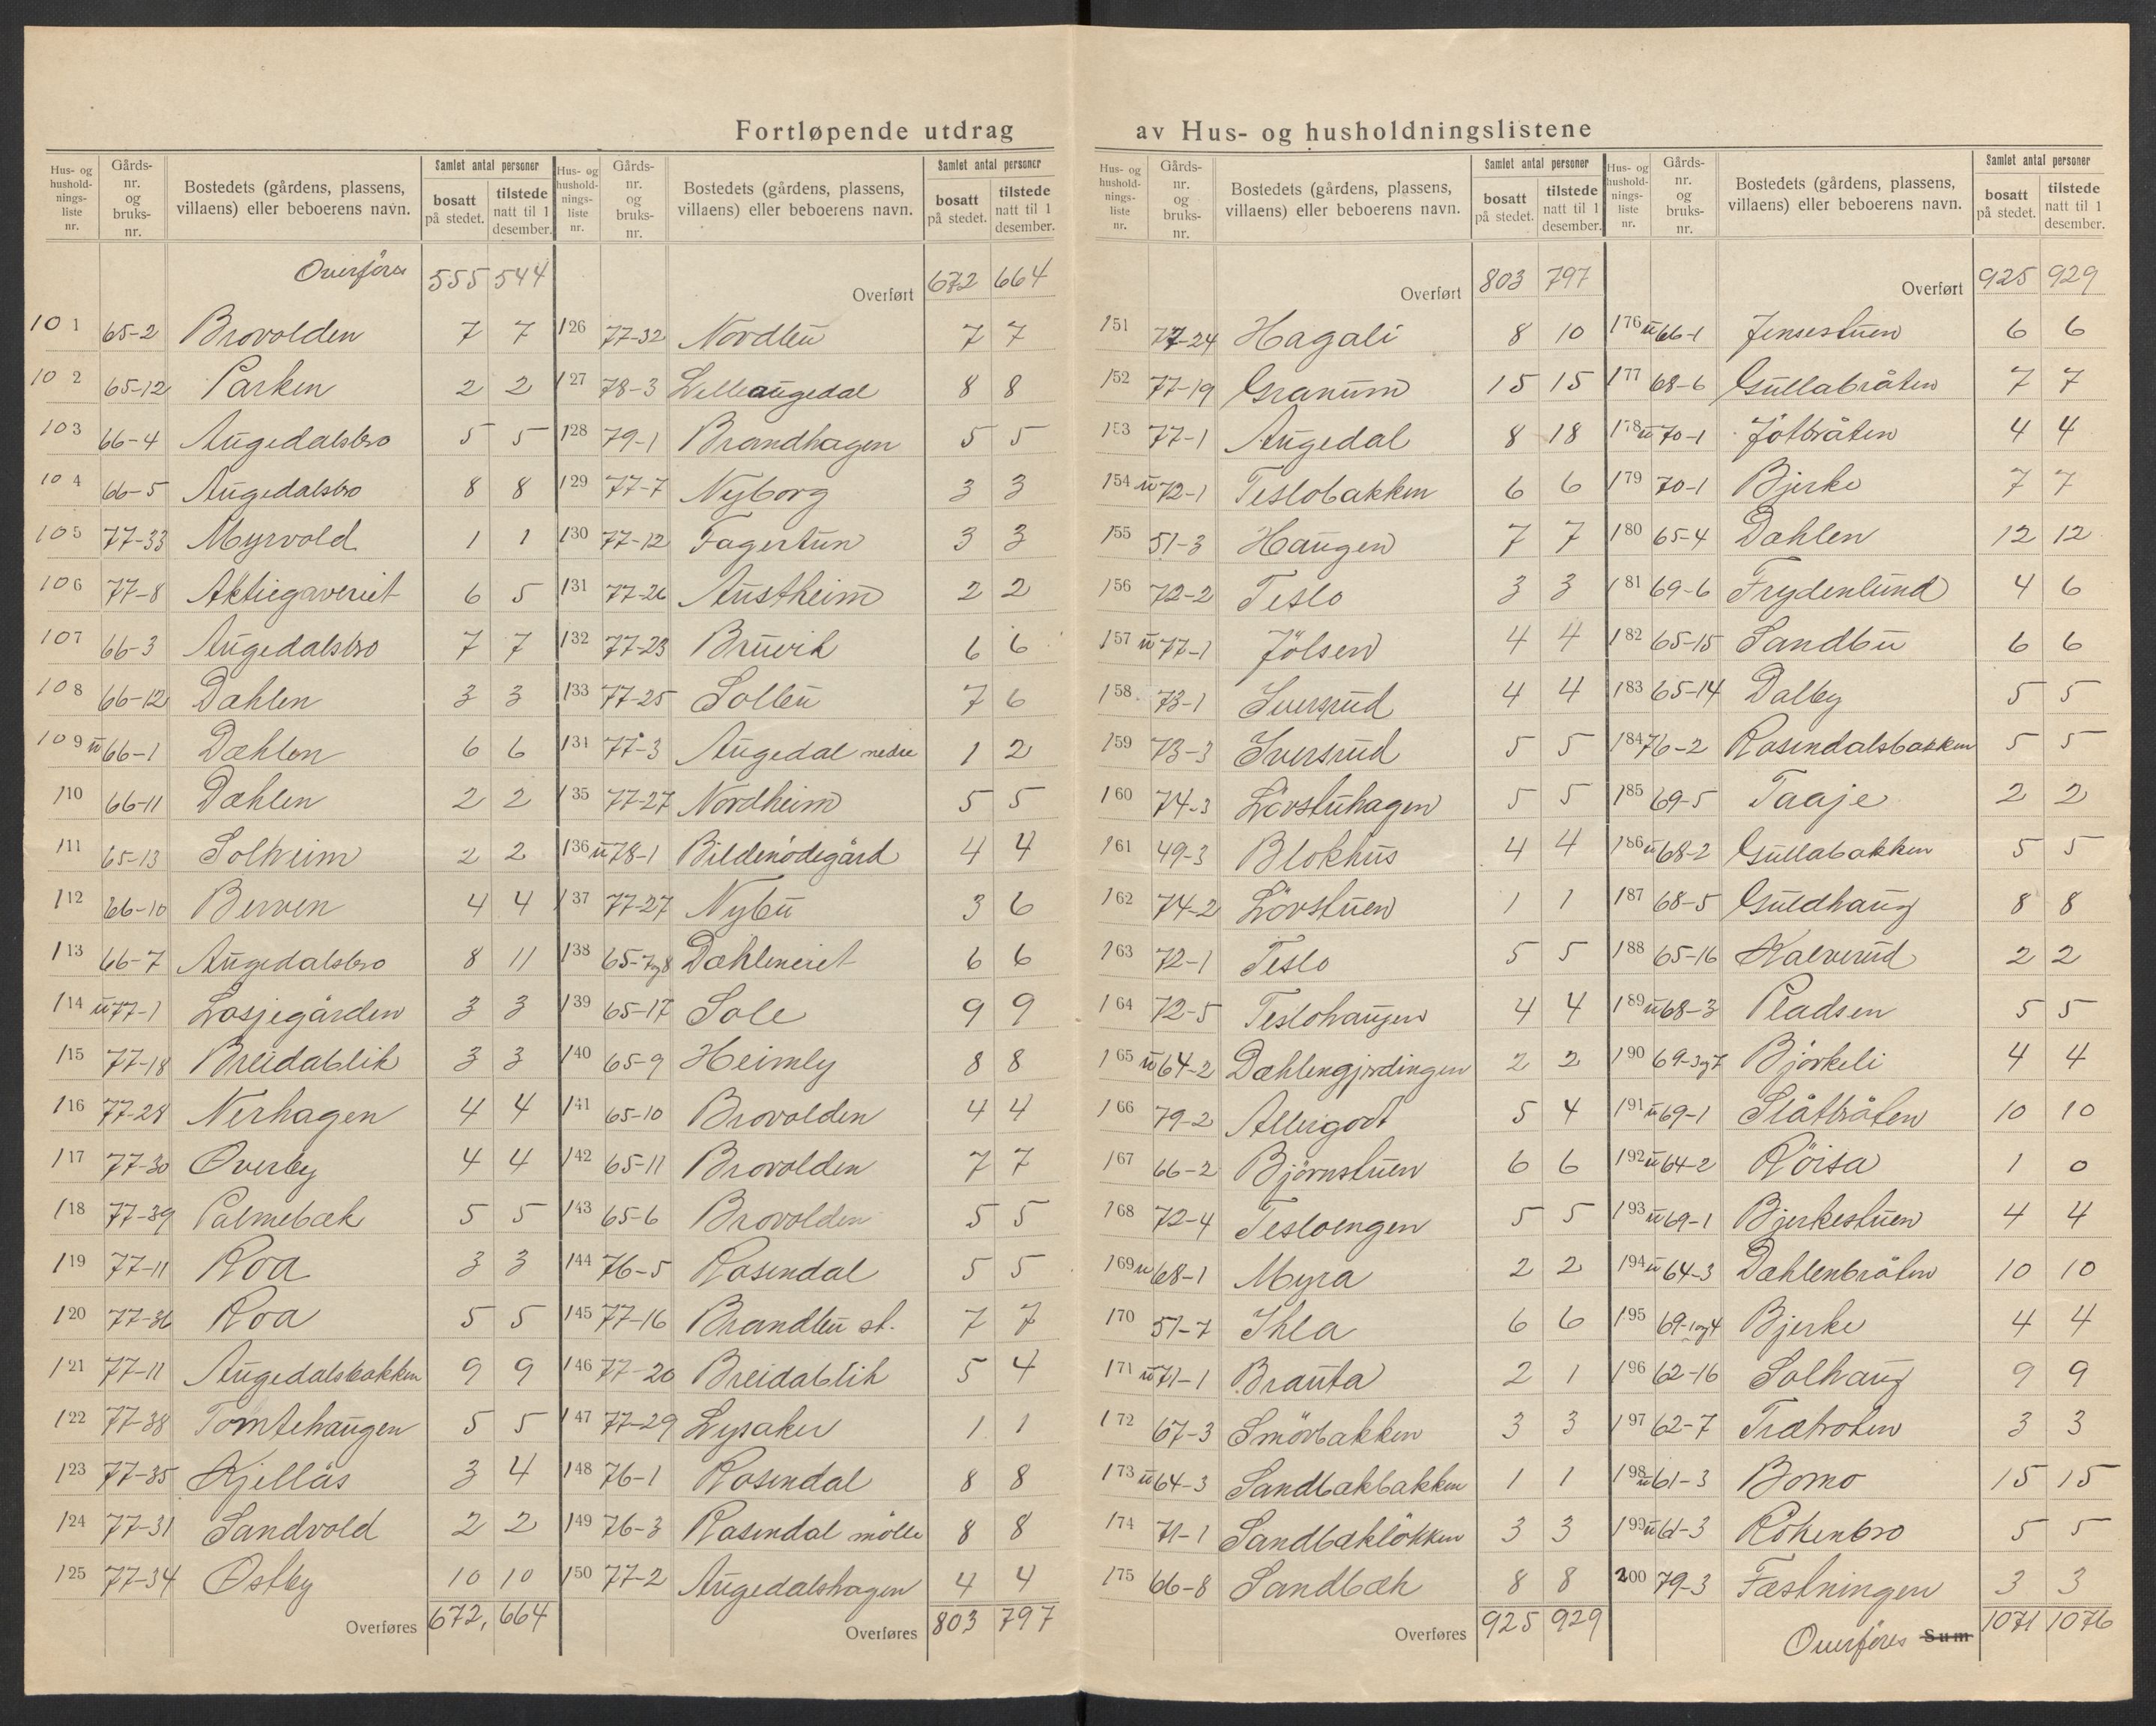 Fortløpende utdrag av Hus- og husholdningslistene
Hus- og husholdningsliste nr. Gårds-nr. og bruks-nr. Bostedets (gårdens, plassens, villaens) eller beboerens navn. Samlet antal personer bosatt på stedet. tilstede natt til 1 desember.
Overføres 555 544
101 65-2 Brovolden 7 7
102 65-12 Parken 2 2
103 66-4 Augedalsbro 5 5
104 66-5 Augedalsbro 8 8
105 77-33 Myrvold 1 1
106 77-8 Aktiegarveriet 6 5
107 66-3 Augedalsbro 7 7
108 66-12 Dæhlen 3 3
109 u 66-1 Dæhlen 6 6
110 66-11 Dæhlen 2 2
111 65-13 Solheim 2 2
112 66-10 Berven 4 4
113 66-7 Augedalsbro 8 11
114 u 77-1 Losjegården 3 3
115 77-18 Breidablik 3 3
116 77-28 Nerhagen 4 4
117 77-30 Overby 4 4
118 77-39 Palmebæk 5 5
119 77-11 Roa 3 3
120 77-36 Roa 5 5
121 77-11 Augedalsbakken 9 9
122 77-38 Tomtehaugen 5 5
123 77-35 Kjellås 3 4
124 77-31 Sandvold 2 2
125 77-34 Østby 10 10
Overføres 672, 664
Hus- og husholdningsliste nr. Gårds-nr. og bruks-nr. Bostedets (gårdens, plassens, villaens) eller beboerens navn. Samlet antal personer bosatt på stedet. tilstede natt til 1 desember.
Overført 672 664
126 77-32 Nordbu 7 7
127 78-3 Lilleaugedal 8 8
128 79-1 Brandhagen 5 5
129 77-7 Nyborg 3 3
130 77-12 Fagertun 3 3
131 77-26 Austheim 2 2
132 77-23 Bruvik 6 6
133 77-25 Solbu 7 6
134 77-3 Augedal nedre 1 2
135 77-27 Nordheim 5 5
136 u 78-1 Bildenödegård 4 4
137 77-27 Nybu 3 6
138 65-7og8 Dæhleneiet 6 6
139 65-17 Sole 9 9
140 65-9 Heimly 8 8
141 65-10 Brovolden 4 4
142 65-11 Brovolden 7 7
143 65-6 Brovolden 5 5
144 76-5 Rosendal 5 5
145 77-16 Brandbu st. 7 7
146 77-20 Breidablik 5 4
147 77-29 Lysaker 1 1
148 76-1 Rosendal 8 8
149 76-3 Rosendal mölle 8 8
150 77-2 Augedalshagen 4 4
Overføres 803 797
Hus- og husholdningsliste nr. Gårds-nr. og bruks-nr. Bostedets (gårdens, plassens, villaens) eller beboerens navn. Samlet antal personer bosatt på stedet. tilstede natt til 1 desember.
Overført 803 797
151 77-24 Hagali 8 10
152 77-19 Granum 15 15
153 77-1 Augedal 8 18
154 u 72-1 Teslobakken 6 6
155 51-3 Haugen 7 7
156 72-2 Teslo 3 3
157 u 77-1 Jölsen 4 4
158 73-1 Iversrud 4 4
159 73-3 Iversrud 5 5
160 74-3 Lövstuhagen 5 5
161 49-3 Blokhus 4 4
162 74-2 Lövstuen 1 1
163 72-1 Teslo 5 5
164 72-5 Teslohaugen 4 4
165 u 64-2 Dæhlengjordingen 2 2
166 79-2 Allergodt 5 4
167 66-2 Björnstuen 6 6
168 72-4 Tesloengen 5 5
169 u 68-1 Myra 2 2
170 51-7 Ihla 6 6
171 u 71-1 Brauta 2 1
172 67-3 Smörbakken 3 3
173 u 64-3 Sandbækbakken 1 1
174 71-1 Sandbæklökken 3 3
175 66-8 Sandbæk 8 8
Overføres 925 929
Hus- og husholdningsliste nr. Gårds-nr. og bruks-nr. Bostedets (gårdens, plassens, villaens) eller beboerens navn. Samlet antal personer bosatt på stedet. tilstede natt til 1 desember.
Overført 925 929
176 u 66-1 Jensestuen 6 6
177 68-6 Gullabråten 7 7
178 u 70-1 4 4
179 70-1 Bjerke 7 7
180 65-4 Dæhlen 12 12
181 69-6 Frydenlund 4 6
182 65-15 Sandbu 6 6
183 65-14 Dalby 5 5
184 76-2 Rosendalsbakken 5 5
185 69-5 Taaje 2 2
186 u 68-2 Gullabakken 5 5
187 68-5 Guldhaug 8 8
188 65-16 Kalverud 2 2
189 u 68-3 Pladsen 5 5
190 69-3og7 Björkeli 4 4
191 u 69-1 Slåtbråten 10 10
192 u 64-2 Röisa 1 0
193 u 69-1 Bjerkestuen 4 4
194 u 64-3 Dæhlenbråten 10 10
195 69-1og4 Bjerke 4 4
196 62-16 Solhaug 9 9
197 62-7 Trætroten 3 3
198 u 61-3 Bomo 15 15
199 u 61-3 Rokenbro 5 5
200 79-3 Fæstningen 3 3
Overføres Sum 1071 1076